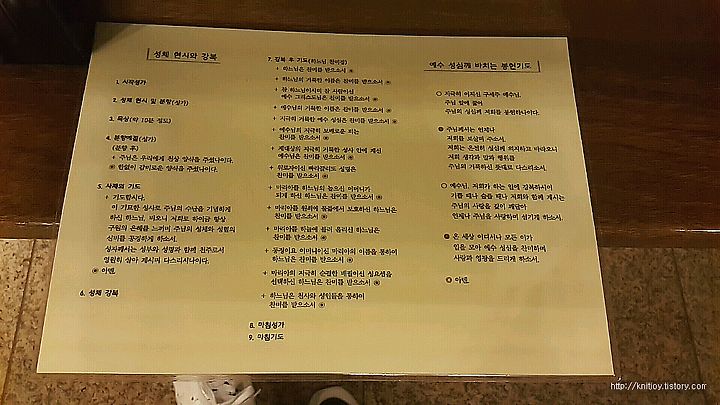 성체 현시와 강복
1. 시작성가
2. 성체 현시 및 분향(성가)
3. 묵상(약 10분 정도)
4. 분향예절(성가)
(분향 후)
+ 주님은 우리에게 천상 양식을 주셨나이다.
◉ 한없이 감미로운 양식을 주셨나이다.
5. 사제의 기도
+ 기도합시다.
이 기묘한 성사로 주님의 수난을 기념하게
하신 하느님, 비오니 저희로 하여금 항상
구원의 은혜를 느끼며 주님의 성체와 성혈의
신비를 공경하게 하소서.
성부께서는 성부와 성령과 함께 천주로서
영원히 살아 계시며 다스리시나이다.
◉ 아멘.
6. 성체 강복
7. 강복 후 기도(하느님 찬미경)
+ 하느님은 찬미를 받으소서 ◉
+ 하느님의 거룩한 이름은 찬미를 받으소서 ◉
+ 참 하느님이시며 참 사람이신
예수 그리스도님은 찬미를 받으소서 ◉
+ 예수님의 거룩한 이름은 찬미를 받으소서 ◉
+ 지극히 거룩한 예수 성심은 찬미를 받으소서 ◉
+ 예수님의 지극히 보배로운 피는
찬미를 받으소서 ◉
+ 제대상의 지극히 거룩한 성사 안에 계신
예수님은 찬미를 받으소서 ◉
+ 위로자이신 빠라끌리도 성령은
찬미를 받으소서 ◉
+ 마리아를 하느님의 높으신 어머니가
되게 하신 하느님은 찬미를 받으소서 ◉
+ 마리아를 원죄에 물듦에서 보호하신 하느님은
찬미를 받으소서 ◉
+ 마리아를 하늘에 불러 올리신 하느님은
찬미를 받으소서 ◉
+ 동정이요 어머니이신 마리아의 이름을 통하여
하느님은 찬미를 받으소서 ◉
+ 마리아의 지극히 순결한 배필이신 성요셉을
선택하신 하느님은 찬미를 받으소서 ◉
+ 하느님은 천사와 성인들을 통하여
찬미를 받으소서 ◉
8. 마침성가
9. 마침기도
예수 성심께 바치는 봉헌기도
○ 지극히 어지신 구세주 예수님,
주님 앞에 꿇어
주님의 성심께 저희를 봉헌하나이다.
◉ 주님께서는 언제나
저희를 보살펴 주소서.
저희는 온전히 성심께 의지하고 바라오니
저희 생각과 말과 행위를
주님의 거룩하신 뜻대로 다스리소서.
○ 예수님, 저희가 하는 일에 강복하시어
기쁠 때나 슬플 때나 저희와 함께 계시는
주님의 사랑을 깊이 깨달아
언제나 주님을 사랑하며 섬기게 하소서.
◉ 온 세상 어디서나 모든 이가
입을 모아 예수 성심을 찬미하며
사랑과 영광을 드리게 하소서.
◎ 아멘.
http://knitjoy.tistory.com